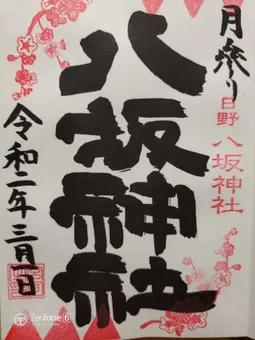 月参り
日野 八坂神社
八坂神社
令和二年三月一日
Zenfone 6